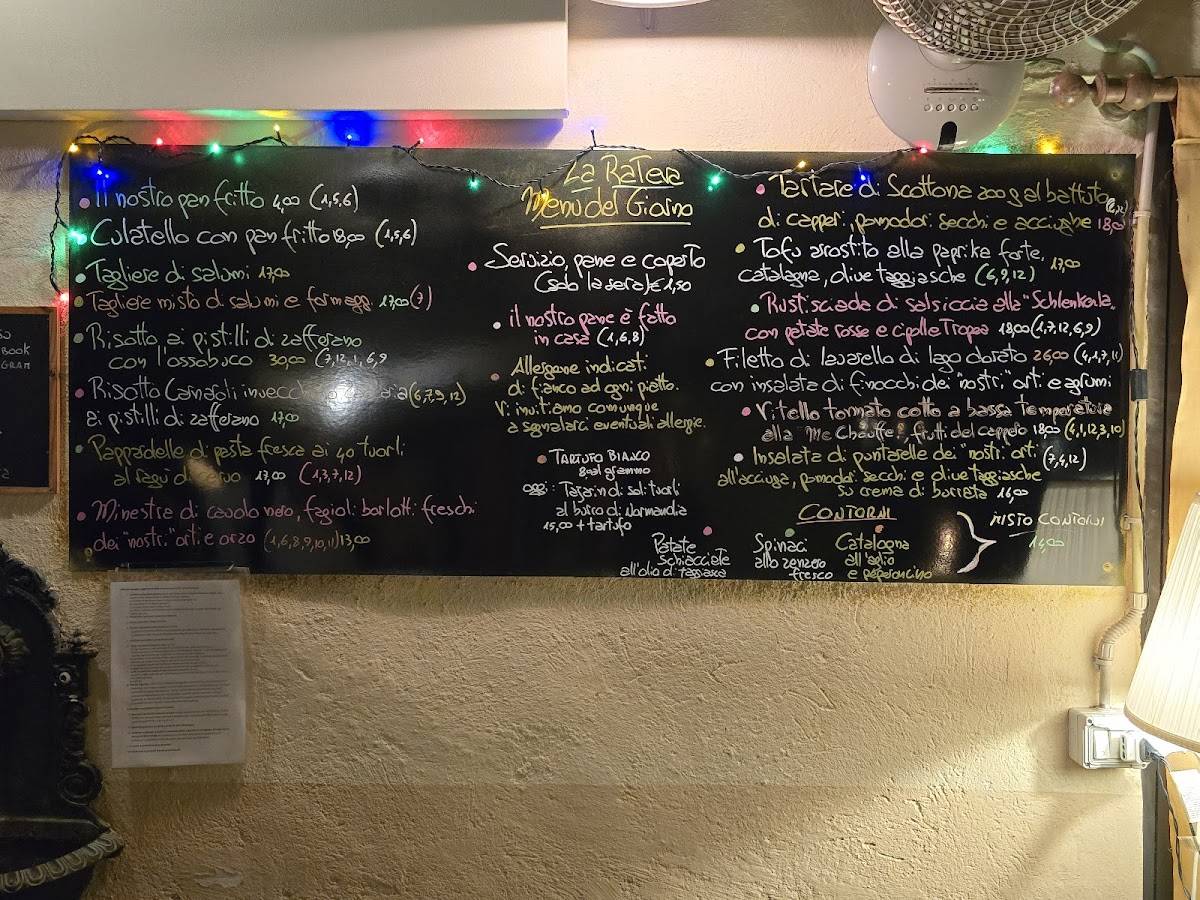 La Ratera
Menù del Giorno
Il nostro pan fritto 4,00 (1,5,6)
Culatello con pan fritto 18,00 (1,5,6)
Tagliere di salumi 17,00
Tagliere misto di salumi e formagg. 17,00 (7)
Risotto ai pistilli di zafferano
con l'ossobuco 30,00 (7,12,1,6,9
Risotto Carnaroli invecchiato (6,7,9,12)
ai pistilli di zafferano 17,00
Pappardelle di pasta fresca ai 40 tuorli
al ragù di cervo 17,00 (1,3,7,12)
Minestra di cavolo nero, fagioli borlotti freschi
dei "nostri" orti e orzo (1,6,8,9,10,11) 13,00
Servizio, pane e coperto
(solo la sera) € 1,50
il nostro pane è fatto
in casa (1,6,8)
Allergene indicati
di fianco ad ogni piatto.
Vi invitiamo comunque
a segnalarci eventuali allergie.
TARTUFO BIANCO
8€ al grammo
oggi: Tajarin di soli tuorli
al burro di Normandia
15,00 + tartufo
Tartare di Scottona 200g al battuto
di capperi, pomodori secchi e acciughe 18,00
Tofu arrostito alla paprika forte,
catalogna, olive taggiasche (6,9,12) 17,00
Rustisciada di salsiccia alla "Schlenkerla"
con patate rosse e cipolle Tropea 18,00 (1,7,12,6,9)
Filetto di lavarello di lago dorato 26,00 (4,1,7,11)
con insalata di finocchi dei "nostri" orti e agrumi
Vitello tonnato cotto a bassa temperatura
alla "Mc Chauffe", frutti del cappero 18,00 (4,1,12,3,10)
Insalata di puntarelle dei "nostri" orti (7,4,12)
all'acciuga, pomodori secchi e olive taggiasche
su crema di burrata 16,00
CONTORNI
Patate
schiacciate
all'olio di taggiasca
Spinaci
allo zenzero
fresco
Catalogna
all'aglio
e peperoncino
MISTO CONTORNI
14,00
BOOK
GRAM